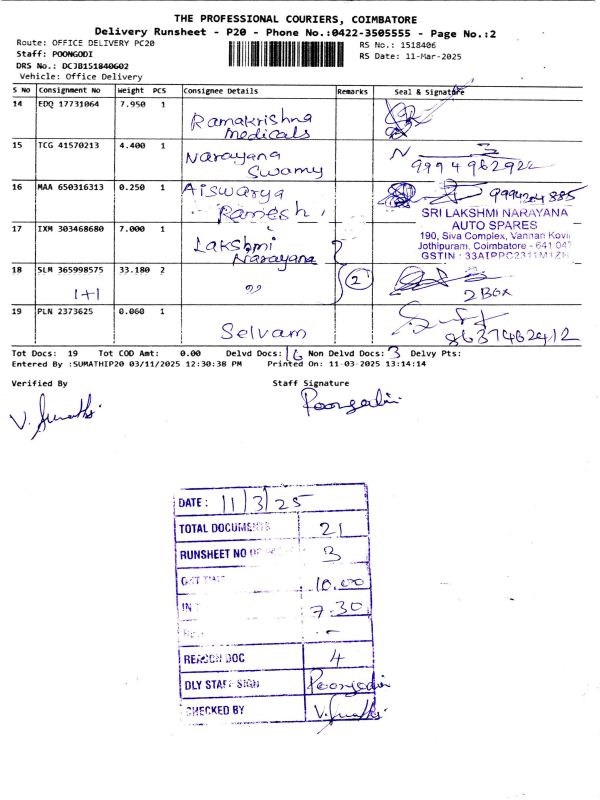 THE PROFESSIONAL COURIERS, COIMBATORE
Delivery Runsheet - P20 - Phone No.:0422-3505555 - Page No.:2
Route: OFFICE DELIVERY PC20
Staff: POONGODI
DRS No.: DCJB151840602
Vehicle: Office Delivery
RS No.: 1518406
RS Date: 11-Mar-2025
S No Consignment No Weight PCS Consignee Details Remarks Seal & Signature
14 EDQ 17731064 7.950 1 Ramakrishna
Medicals
15 TCG 41570213 4.400 1 Narayana
Swamy
N
9994962922
16 MAA 650316313 0.250 1 Aiswarya
Ramesh
9994204885
SRI LAKSHMI NARAYANA
AUTO SPARES
190, Siva Complex, Vannan Kovil
Jothipuram, Coimbatore - 641 047
GSTIN : 33AIPPC2311M1ZH
17 IXM 303468680 7.000 1 Lakshmi
Narayana
18 SLM 365998575 33.180 2 〃 2
1+1
2 BOX
19 PLN 2373625 0.060 1
Selvam
8637462412
Tot Docs: 19 Tot COD Amt: 0.00 Delvd Docs: 16 Non Delvd Docs: 3 Delvy Pts:
Entered By :SUMATHIP20 03/11/2025 12:30:38 PM Printed On: 11-03-2025 13:14:14
Verified By Staff Signature
V. Sumathi Poongodi
DATE : 11/3/25
TOTAL DOCUMENTS 21
RUNSHEET NO 3
OUT TIME 10.00
IN 7.30
-
REASON DOC 4
DLY STAFF SIGN Poongodi
CHECKED BY V. Sumathi